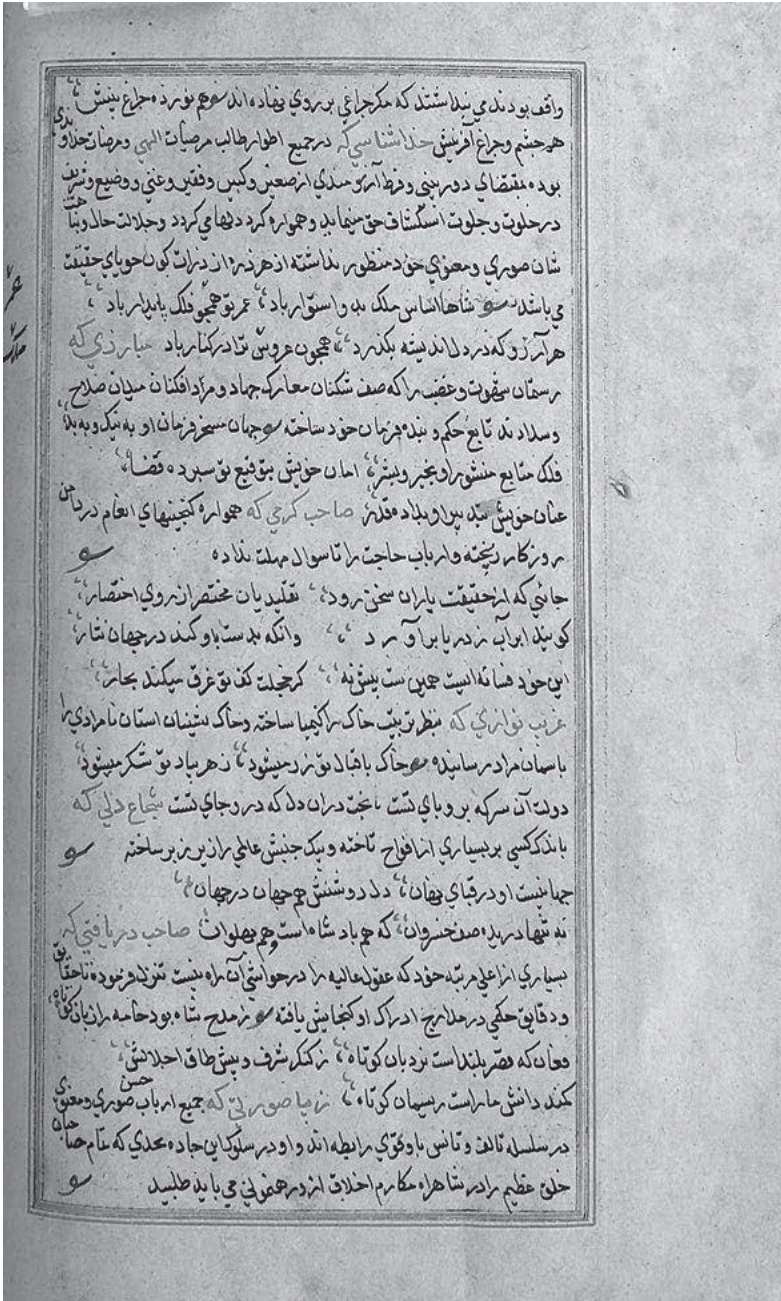 واقف بودند می پنداشتند که مکر چراغی بر روی نهاده اند هم نور ده چراغ بینش
هم چشم و چراغ آفرینش خداشناسی که در جمیع اطوار طالب مرضیات الهی و مرضات خداوندی
بوده بمقتضای دوربینی و فرط آرزومندی از صغیر و کبیر و فقیر و غنی و وضیع و شریف
در خلوت و جلوت استکشاف حق مینماید و همواره کرد دلها می کردد و جلالت حال و نباهت
شان صوری و معنوی خود منظور نداشته از هر ذره از ذرات کون جویای حقیقت
می باشد شاها اساس ملک تو استوار باد عمر تو همچو فلک پایدار باد
هر آرزو که در دل اندیشه بکذرد همچون عروس ترا در کنار باد مبارزی که
رستمان شهوت و غضب را که صف شکنان معارک جهاد و مرد افکنان میدان صلاح
و سدادند تابع حکم و بنده فرمان خود ساخته جهان مسخر فرمان او به نیک و به بد
فلک متابع منشور او بخیر و بشر امان خویش بتوقیع تو سپرده قضا
عنان خویش بتدبیر او بداده قدر صاحب کرمی که همواره کنجینهای انعام در دامن
روزکار ریخته و ارباب حاجت را تا سوال مهلت نداده
جائی که از حقیقت یاران سخن رود تقلیدیان مختصر از روی اختصار
کویند ابر آب ز دریا برآورد وانکه بدست باو کند در جهان نثار
این خود فسانه ایست همین ست بیش نه کز خجلت کف تو عرق میکند بحار
غریب نوازی که بنظر تربیت خاک را کیمیا ساخته و خاک نشینان استان نامرادی را
باسمان مراد رسانیده خاک باقبال تو زر میشود زهر بیاد تو شکر میشود
دولت آن سر که برو پای تست بخت دران دل که درو جای تست شجاع دلی که
باندک کسی بر بسیاری از افواج تاخته و بیک جنبش عالمی را زیر و زبر ساخته
جهانیست او در قبای نهان دل روشنش هم جهان در جهان
نه تنها دریده صف خسروان که هم بادشاه است و هم پهلوان صاحب دریافتی که
بسیاری از اعلی مرتبه خود که عقول عالیه را در حواشی آن راه نیست تنزل فرموده تا حقایق
و دقایق حکمی در مدارج ادراک او کنجایش یافته ز مدح شاه بود خامه را زبان کوتاه
فغان که قصر بلند است نردبان کوتاه ز کنکر شرف و پیش طاق اجلالش
کمند دانش ما راست ریسمان کوتاه زیبا صورتی که جمیع ارباب حسن صوری و معنوی
در سلسله تالف و تانس باو قوی رابطه اند و او در سلوک این جاده بحدی که تمام صاحبان
خلق عظیم را در شاهراه مکارم اخلاق ازو رهنمونی می باید طلبید
عمر
ملک